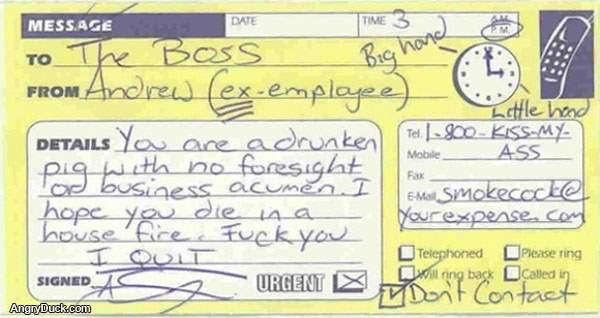 MESSAGE DATE TIME 3 A.M. P.M.
TO The Boss Big hand
FROM Andrew (ex-employee)
Little hand
DETAILS You are a drunken
pig with no foresight
or business acumen. I
hope you die in a
house fire. Fuck you
I QUIT
SIGNED
URGENT
Tel. 1-800-KISS-MY-
Mobile ASS
Fax
E-Mail smokecock@
yourexpense.com
Telephoned Please ring
Will ring back Called in
Don't Contact
AngryDuck.com